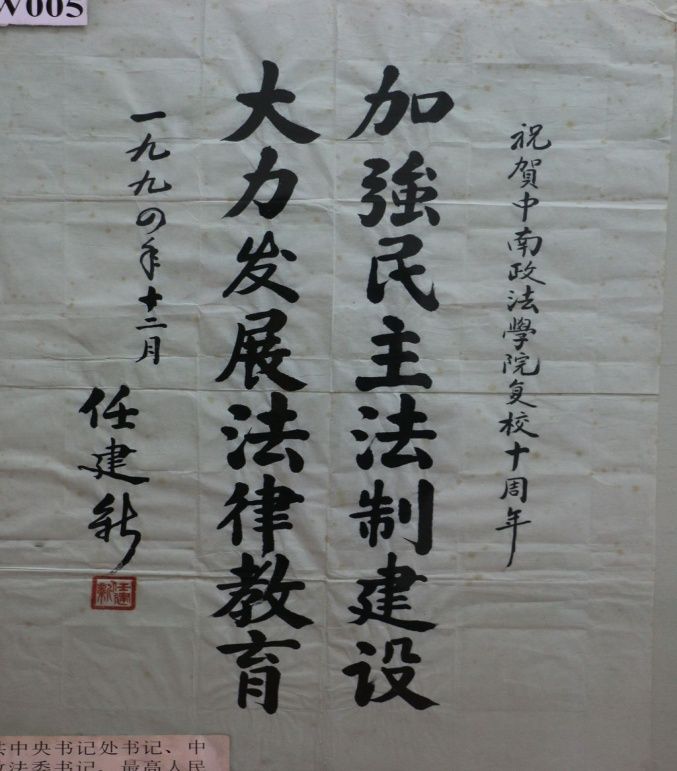 W005
祝賀中南政法學院复校十周年
加強民主法制建设
大力发展法律教育
一九九四年十二月
任建新
任建新
共中央书记处书记、中
政法委书记，最高人民